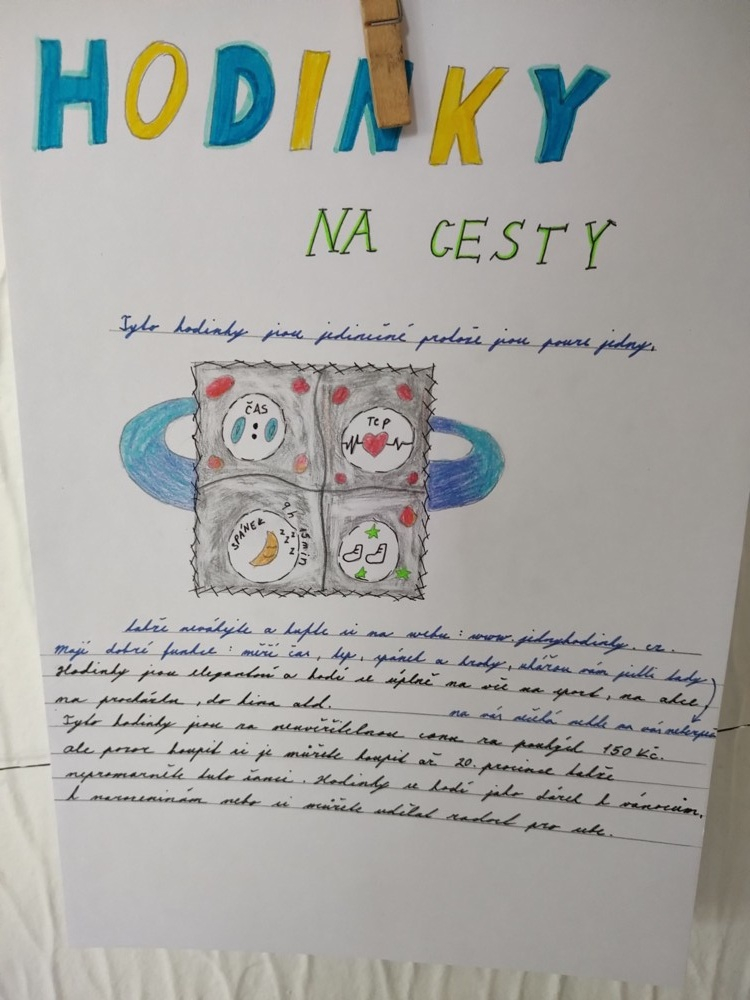 HODINKY
NA CESTY
Tyto hodinky jsou jedinečné protože jsou pouze jedny.
ČAS
TEP
SPÁNEK
9h 15min
z z z z
takže neváhejte a kupte si na webu: www.jednyhodinky.cz.
mají dobré funkce: měří čas, tep, spánek a kroky, ukážou vám jestli tady
na vás někdo
Hodinky jsou elegantní a hodí se úplně na vše na sport, na akce,
na procházku, do kina atd.
Tyto hodinky jsou za neuvěřitelnou cenu za pouhých 150 Kč.
ale pozor koupit si je můžete koupit až 20. prosince takže
nepromarněte tuto šanci. Hodinky se hodí jako dárek k vánocům,
k narozeninám nebo si můžete udělat radost pro sebe.